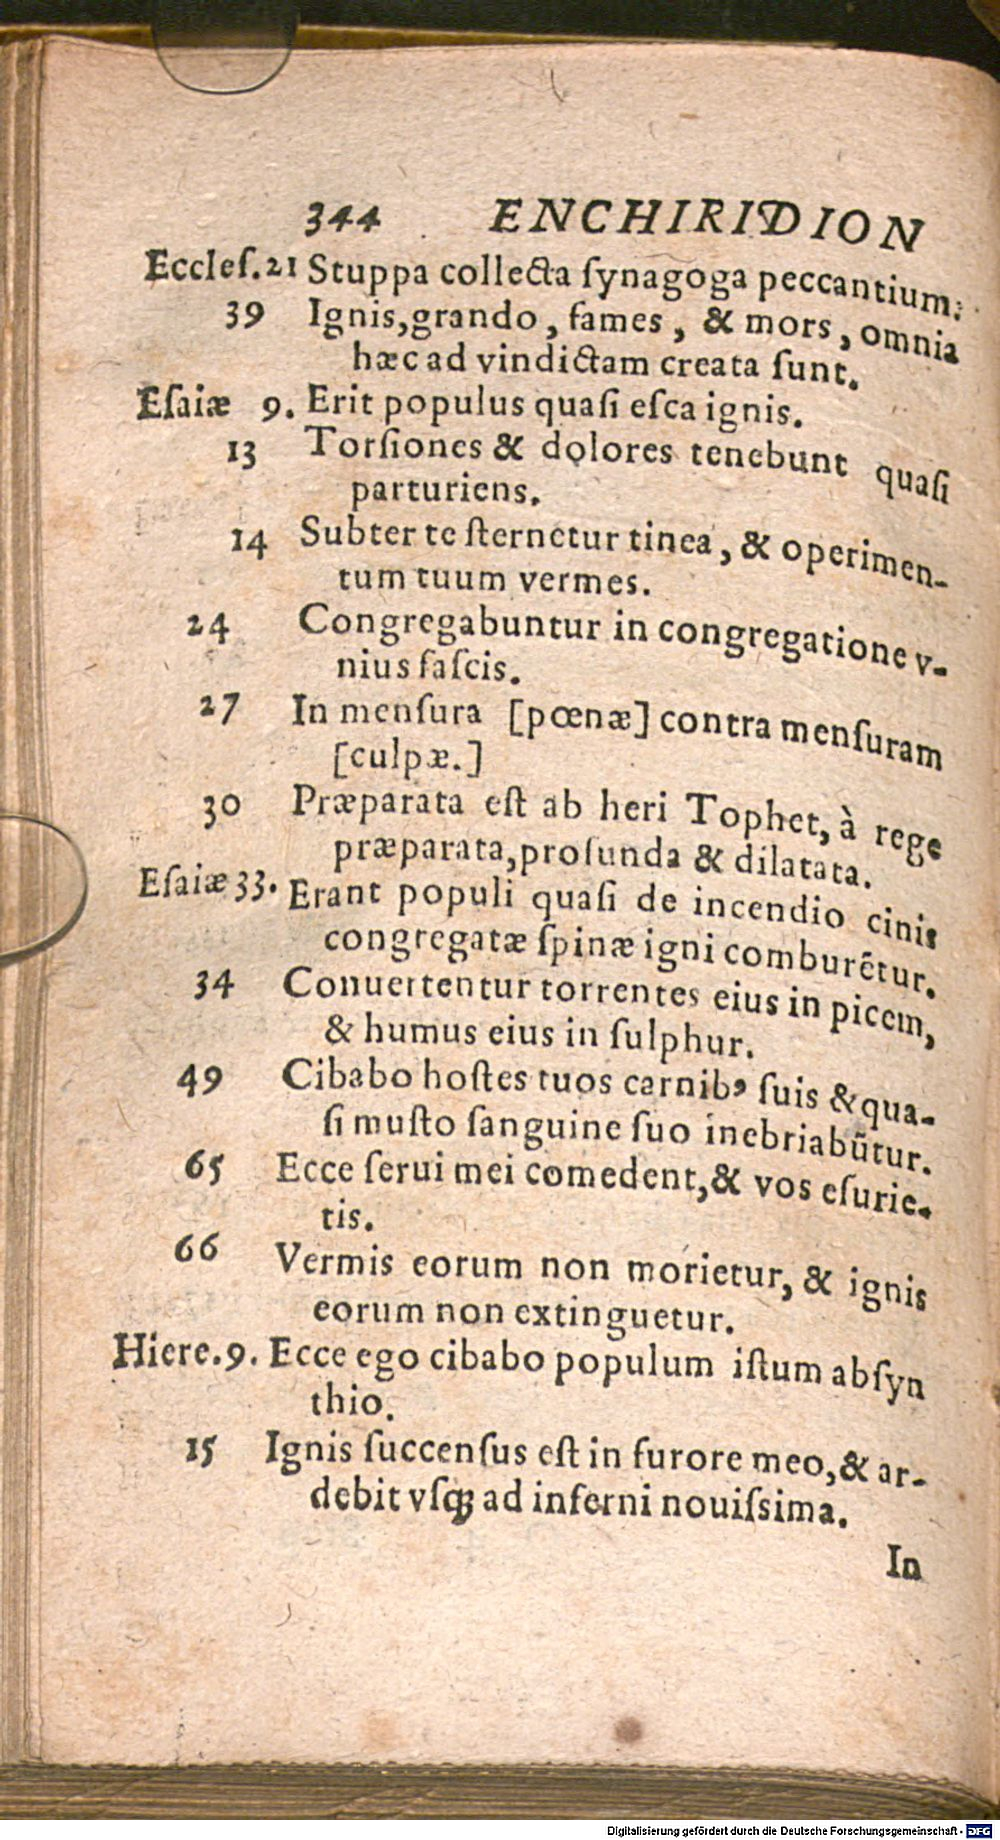 344 ENCHIRIDION
Eccleſ.21 Stuppa collecta ſynagoga peccantium:
39 Ignis,grando, fames, & mors, omnia
hæc ad vindictam creata ſunt.
Eſaiæ 9. Erit populus quaſi eſca ignis.
13 Torſiones & dolores tenebunt quaſi
parturiens.
14 Subter te ſternetur tinea, & operimen-
tum tuum vermes.
24 Congregabuntur in congregatione v-
nius faſcis.
27 In menſura [pœnæ] contra menſuram
[culpæ.]
30 Præparata eſt ab heri Tophet, à rege
præparata, profunda & dilatata.
Eſaiæ 33. Erant populi quaſi de incendio cinis
congregatæ ſpinæ igni comburētur.
34 Conuertentur torrentes eius in picem,
& humus eius in ſulphur.
49 Cibabo hoſtes tuos carnibꝰ ſuis & qua-
ſi muſto ſanguine ſuo inebriabūtur.
65 Ecce ſerui mei comedent,& vos eſurie-
tis.
66 Vermis eorum non morietur, & ignis
eorum non extinguetur.
Hiere.9. Ecce ego cibabo populum iſtum abſyn
thio.
15 Ignis ſuccenſus eſt in furore meo,& ar-
debit vſqꝫ ad inferni nouiſsima.
In
Digitalisierung gefördert durch die Deutsche Forschungsgemeinschaft - DFG